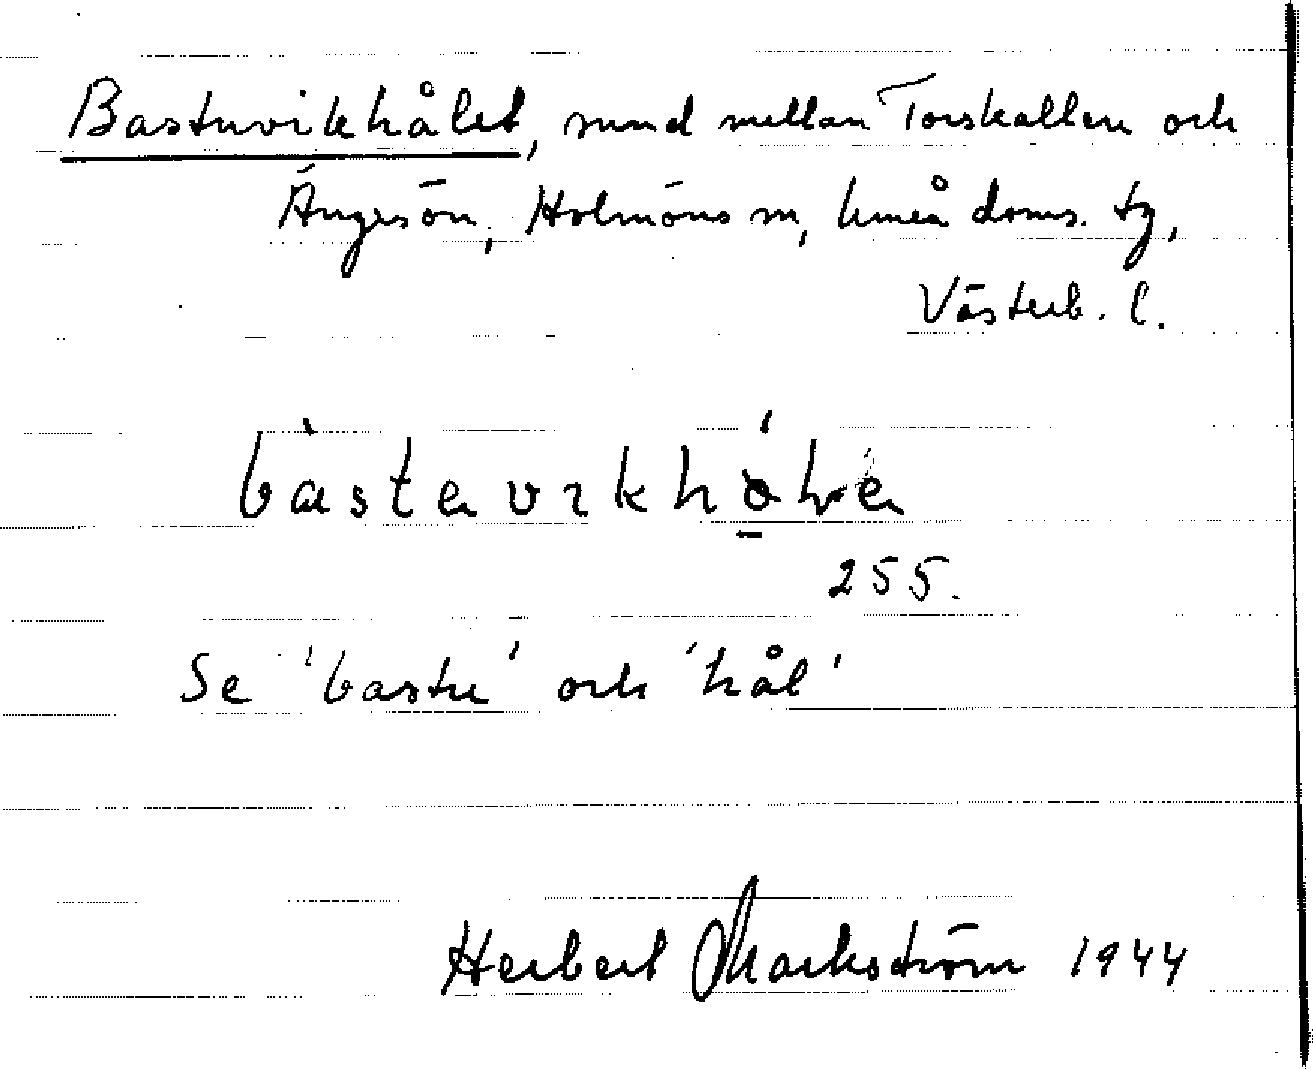 Bastuvikhålet, sund mellan Torskallen och
Ängesön, Holmöns sn, Umeå doms. tg,
Västerb. l.
255.
Se 'bastu' och 'hål'
Herbert Markström 1944